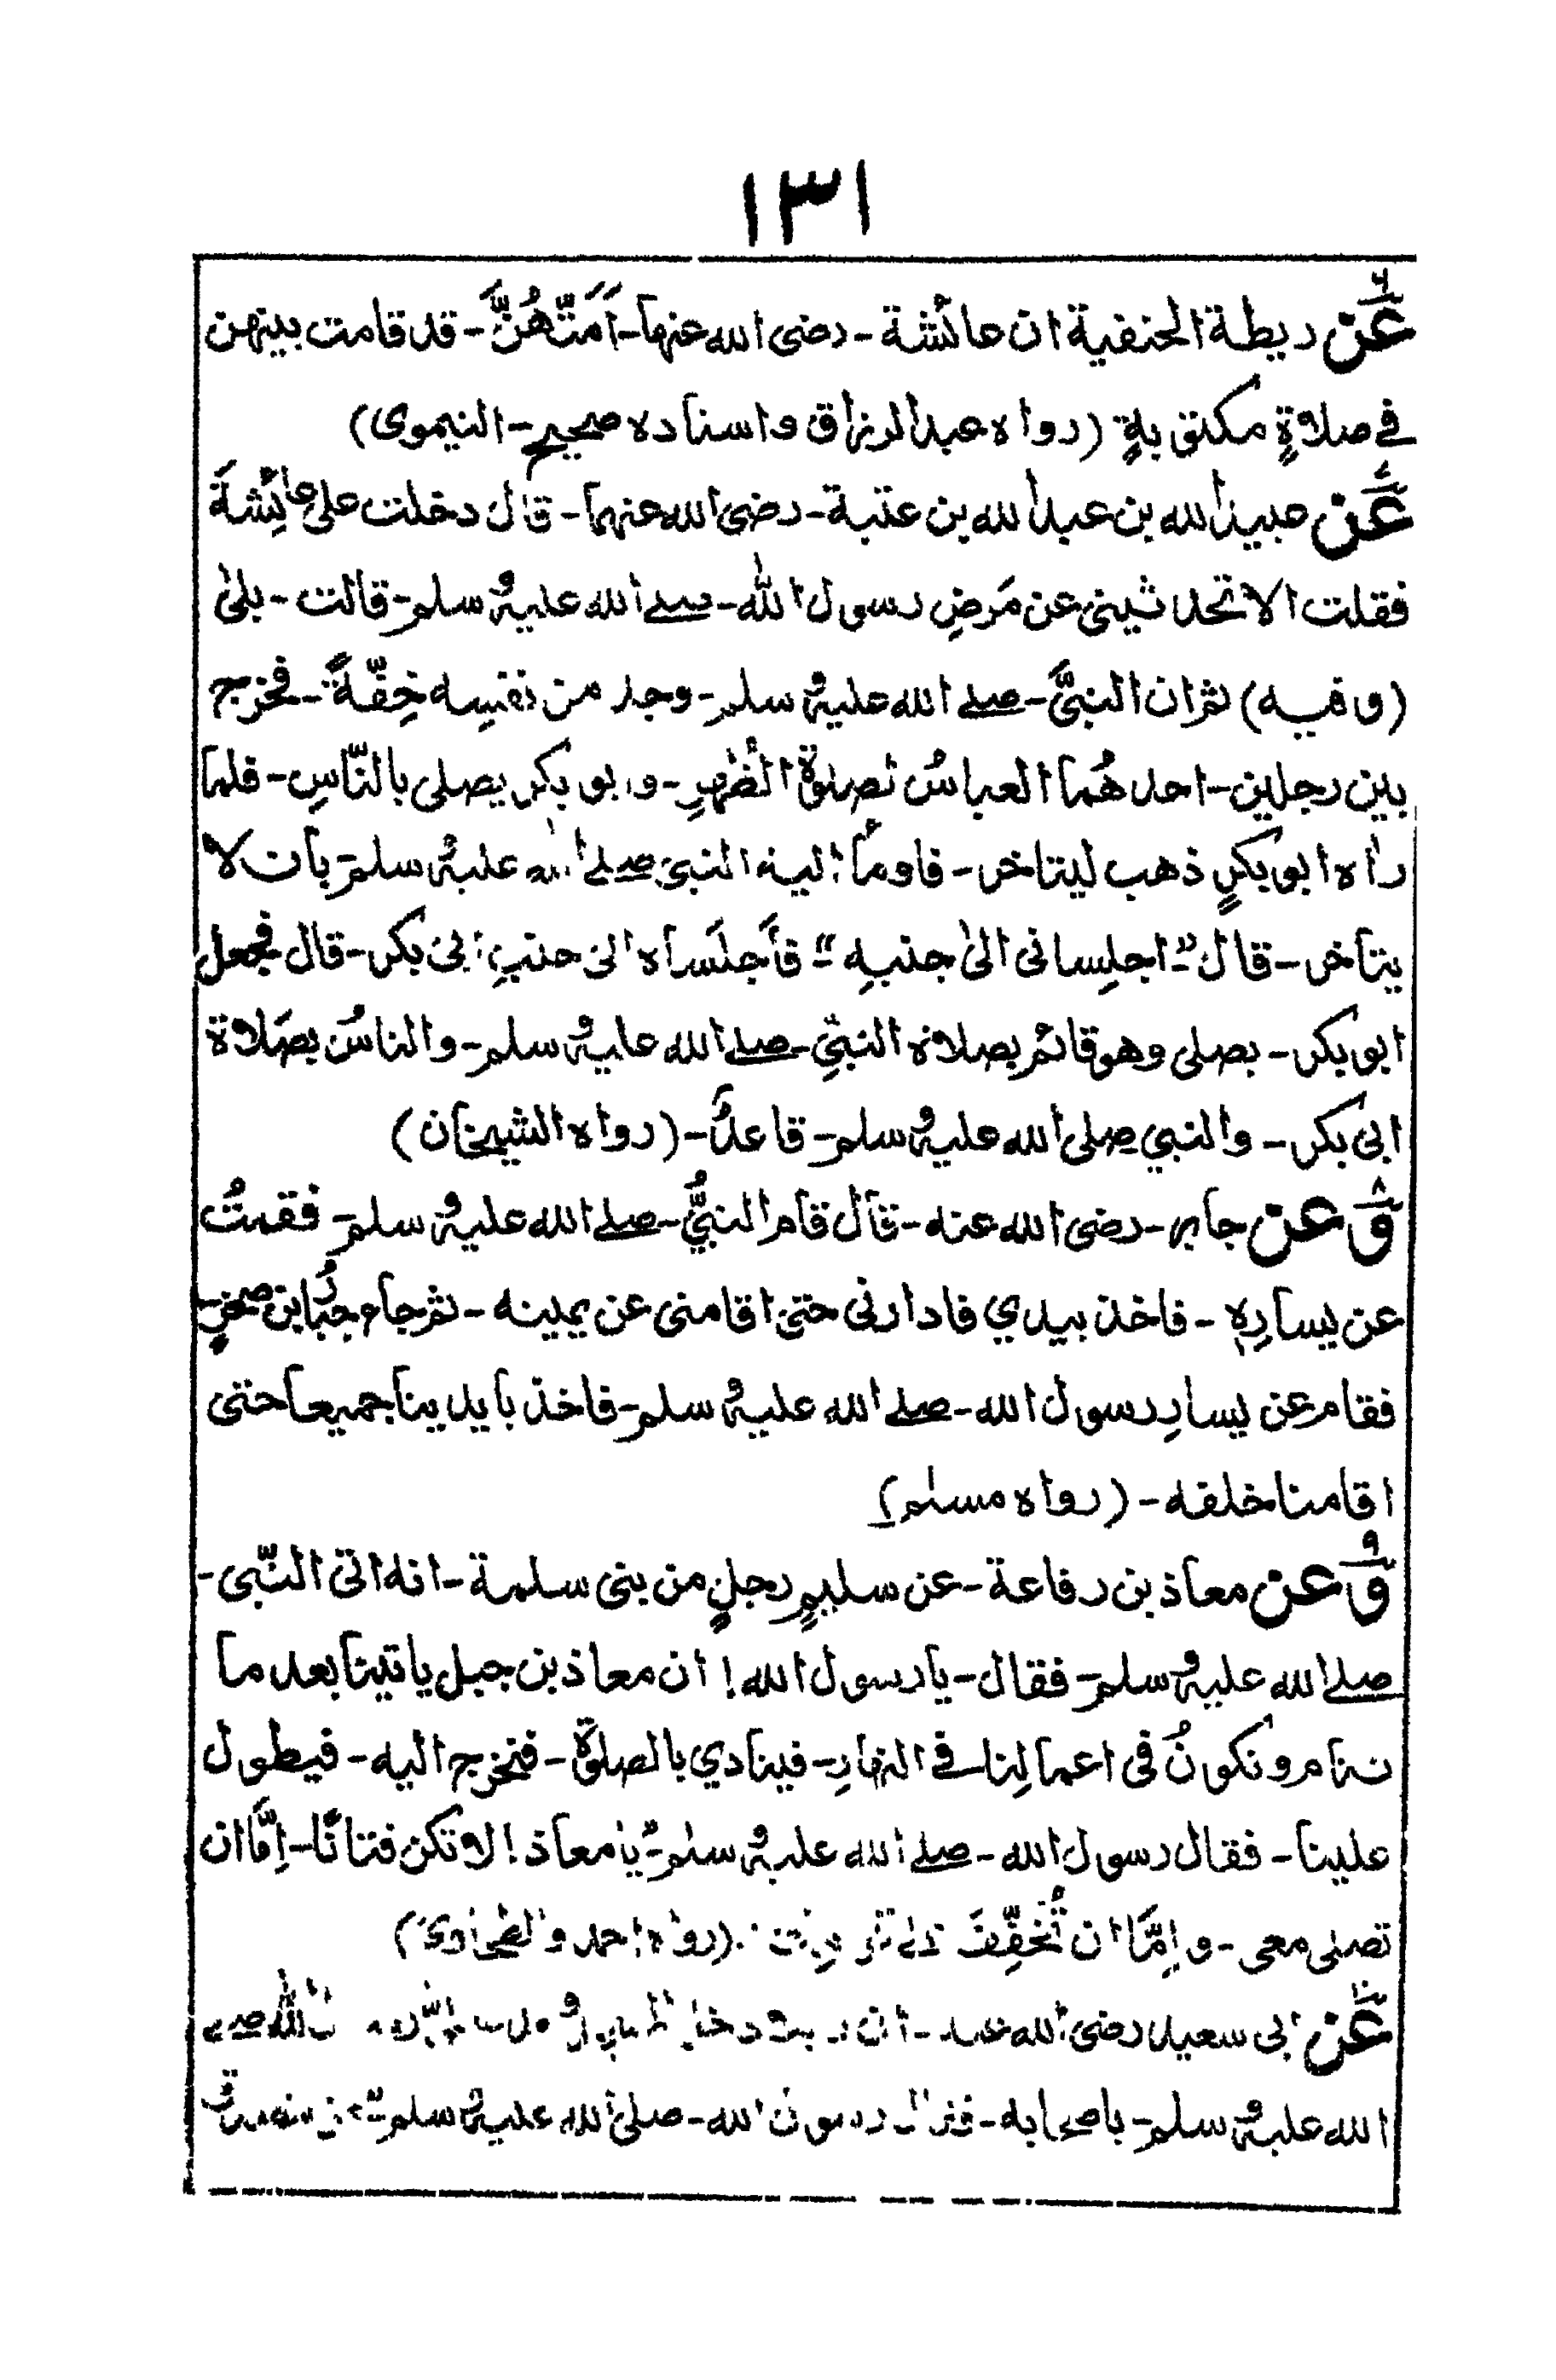 ١٣١
٦ عن ريطة الحنفية ان عائشة - رضى الله عنها - اَمَّتْهُنَّ - قد قامت بينهن
فى صلاةٍ مكتوبةٍ (رواه عبد الرزاق واسناده صحيح - النيموى)
٧ عن عبيد الله بن عبد الله بن عتبة - رضى الله عنهما - قال دخلت على عائِشةَ
فقلت الا تحدثينى عن مَرَضِ رسول الله - صلى الله عليه و سلم - قالت - بلىٰ
(وفيه) ثم ان النبىَّ - صلى الله عليه و سلم - وجد من نفسِه خِفّةً - فخرج
بين رجلين - احدهُما العباسُ لصلوٰة الظُهرِ - وابو بكر يصلى بالنّاسِ - فلما
راٰه ابو بكرٍ ذهب ليتاخر - فاومأ اليه النبى صلى الله عليه و سلم - بان لا
يتاخر - قال "اجلِسانى الىٰ جنبِه" - فَأَجلَساه الى جنبِ ابى بكر - قال فجعل
ابو بكر - يصلى وهو قائم بصلاة النبىِ - صلى الله عليه و سلم - والناسُ بصَلاة
ابى بكر - والنبي صلى الله عليه و سلم - قاعدٌ - (رواه الشيخان)
٨ وعن جابر - رضى الله عنه - قال قام النبىُّ - صلى الله عليه و سلم - فقمتُ
عن يسارِهٖ - فاخذ بيدي فادارنى حتى اقامنى عن يمينه - ثم جاء جبّارُ ابن صخرٍ -
فقام عن يسارِ رسول الله - صلى الله عليه و سلم - فاخذ بايدينا جميعا حتى
اقامنا خلفه - (رواه مسلم)
٩ وعن معاذ بن رفاعة - عن سليمٍ رجلٍ من بنى سلمة - انه اتى النّبى -
صلى الله عليه و سلم - فقال - يا رسول الله! ان معاذ بن جبل ياتينا بعد ما
ننام ونكونُ فى اعمالِنا فى النهارِ - فينادي بالصلوٰة - فنخرج اليه - فيطول
علينا - فقال رسول الله - صلى الله عليه و سلم - يا معاذ! لا تكن فتانًا - اِمَّا ان
تصلى معى - واِمَّا ان تُخفِّفَ (رواه احمد والطحاوى)
١٠ عن ابى سعيد رضى الله عنه - ان دخل المسجد و صلى
الله عليه و سلم - باصحابه - فقال رسول الله - صلى الله عليه و سلم - من يتصدق